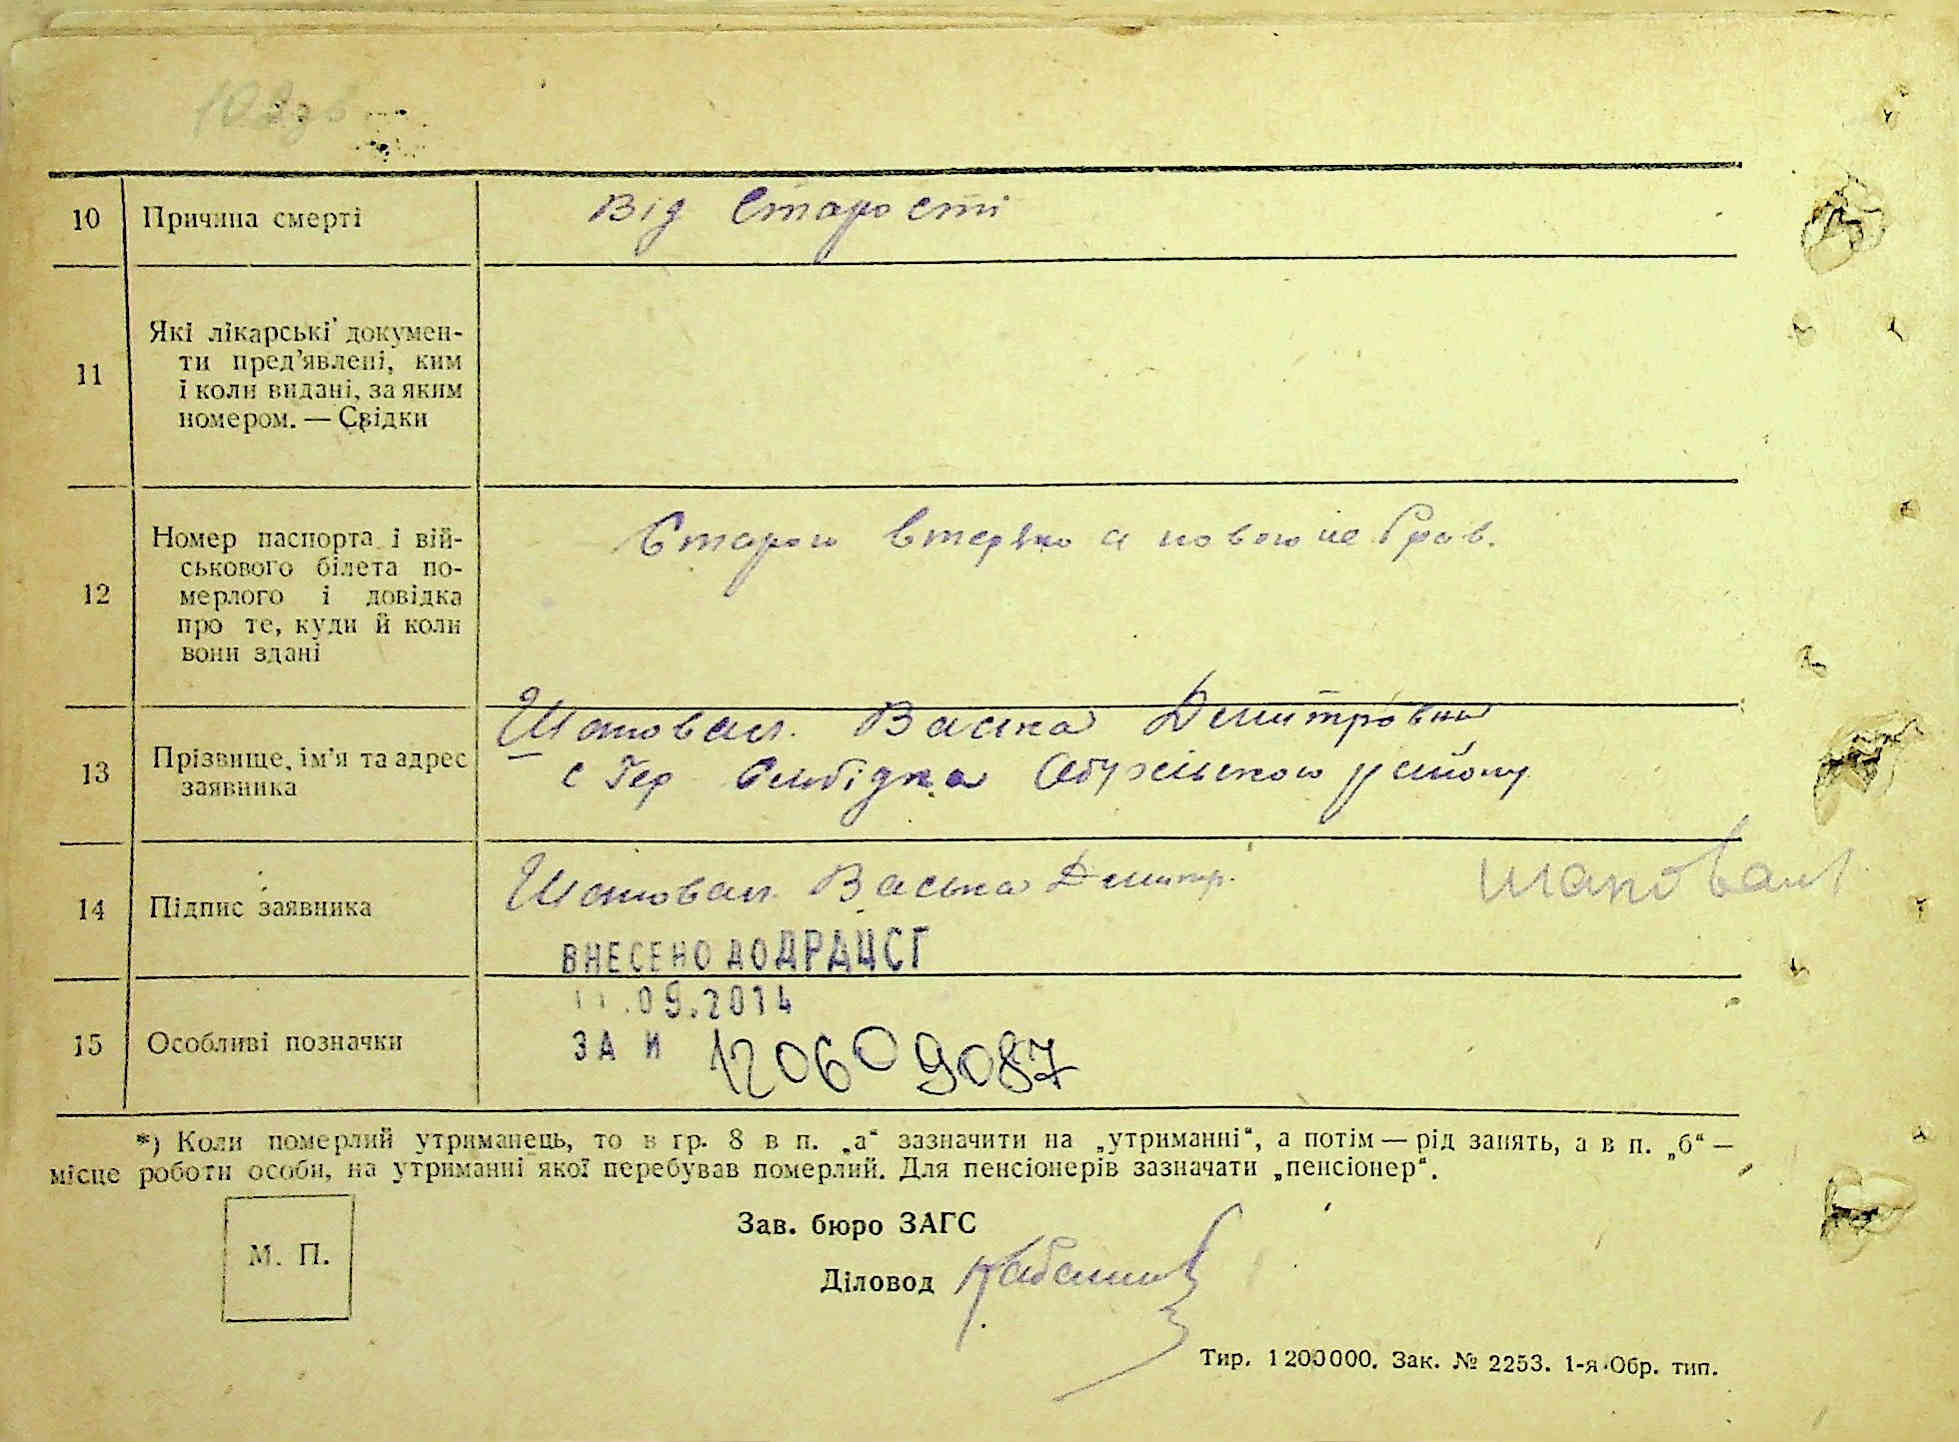 10
Причина смерті
Від Старості
11
Які лікарські докумен-
ти пред'явлені, ким
і коли видані, за яким
номером. — Свідки
12
Номер паспорта і вій-
ськового білета по-
мерлого і довідка
про те, куди й коли
вони здані
а нового не
13
Прізвище, ім'я та адрес
заявника
Шаповал. Васика Дмитровна
с Гер Слобідка Обухівського району
14
Підпис заявника
Шаповал. Васика Дмитр. шаповал
ВНЕСЕНО ДО ДРАЦСГ
.09.2014
15
Особливі позначки
ЗА И 120609087
*) Коли померлий утриманець, то в гр. 8 в п. „а“ зазначити на „утриманні“, а потім — рід занять, а в п. „б“ —
місце роботи особи, на утриманні якої перебував померлий. Для пенсіонерів зазначати „пенсіонер“.
М. П.
Зав. бюро ЗАГС
Діловод
Тир. 1200000. Зак. № 2253. 1-я Обр. тип.